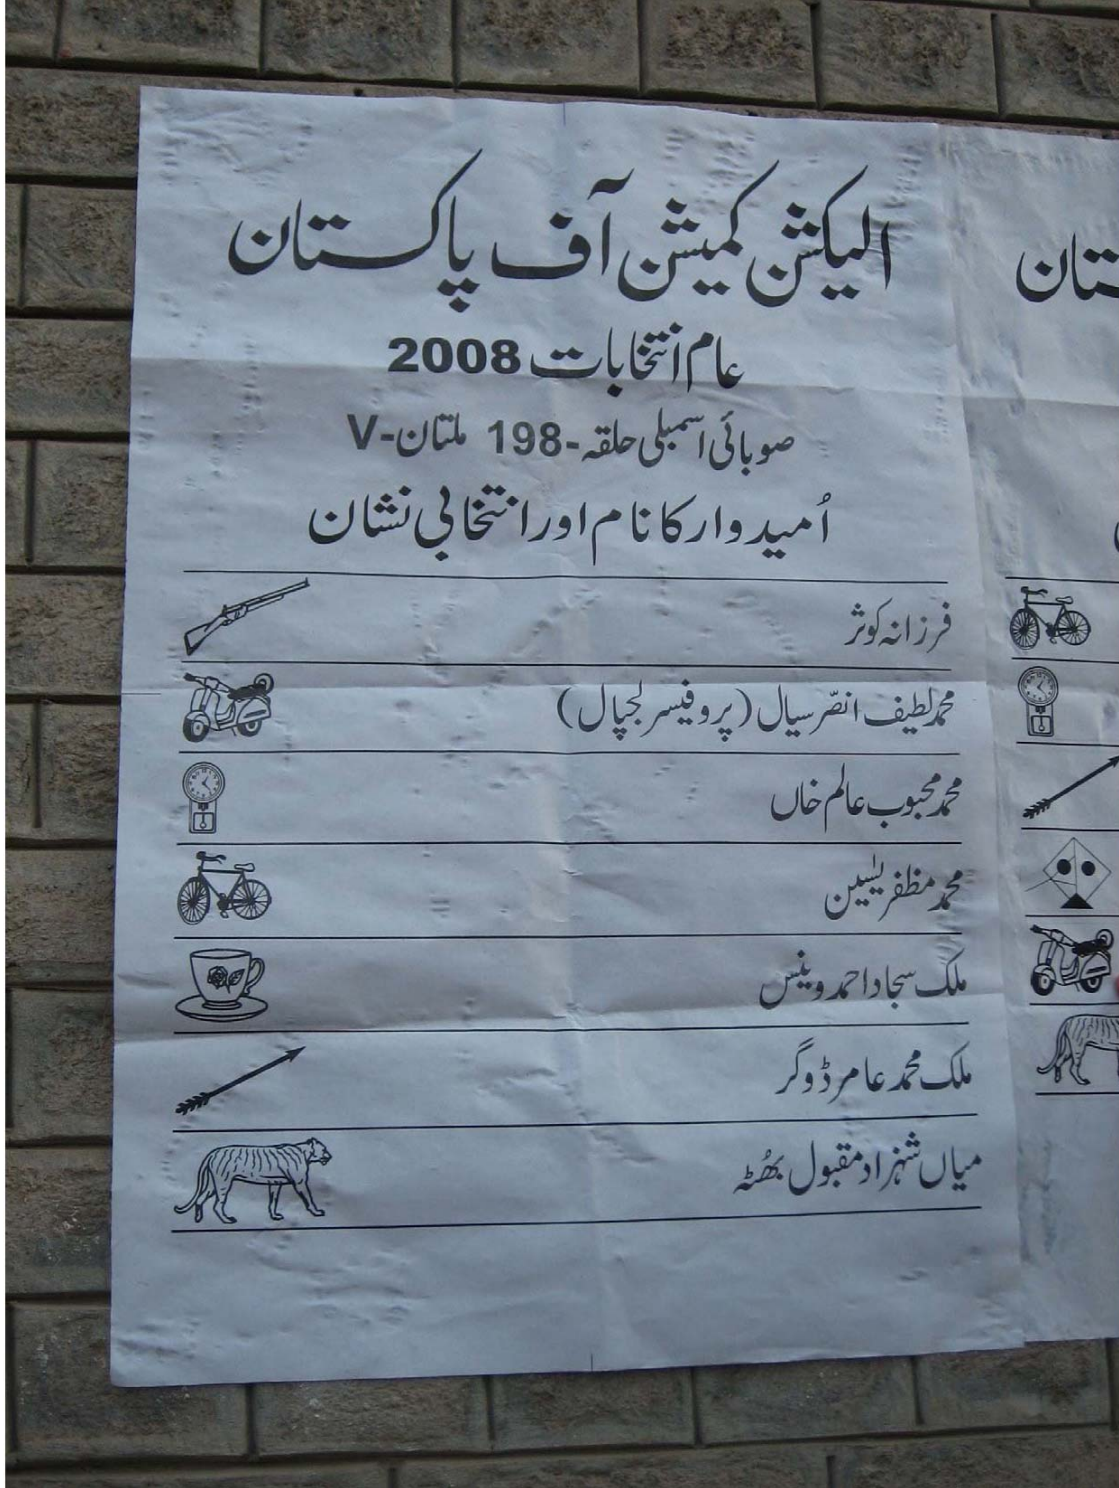 الیکشن کمیشن آف پاکستان
عام انتخابات 2008
صوبائی اسمبلی حلقہ-198 ملتان-V
اُمیدوار کا نام اور انتخابی نشان
فرزانہ کوثر
محمد لطیف انصر سیال (پروفیسر لجپال)
محمد محبوب عالم خاں
محمد مظفر یٰسین
ملک سجاد احمد وینس
ملک محمد عامر ڈوگر
میاں شہزاد مقبول بھُٹہ